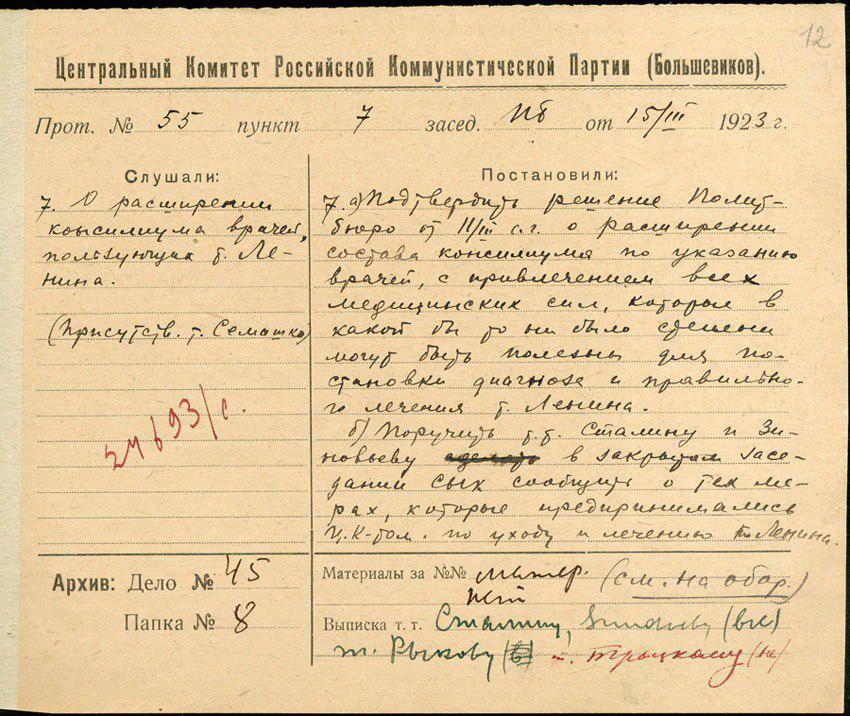 12
Центральный Комитет Российской Коммунистической Партии (Большевиков).
Прот. № 55 пункт 7 засед. ПБ от 15/III 1923 г.
Слушали:
7. О расширении
консилиума врачей,
пользующих т. Ле-
нина.
(Присутств. т. Семашко)
24693/с.
Постановили:
7. а) Подтвердить решение Полит-
бюро от 11/III с.г. о расширении
состава консилиума по указанию
врачей, с привлечением всех
медицинских сил, которые в
какой бы то ни было степени
могут быть полезны для по-
становки диагноза и правильно-
го лечения т. Ленина.
б) Поручить т.т. Сталину и Зи-
новьеву в закрытом засе-
дании сообщить о тех ме-
рах, которые предпринимались
Ц.К-том. по уходу и лечению Ленина.
Архив: Дело № 45
Папка № 8
Материалы за №№ (см. на обор.)
Выписка т. т. Сталину, Зиновьеву (вк)
т. Рыкову т. Троцкому